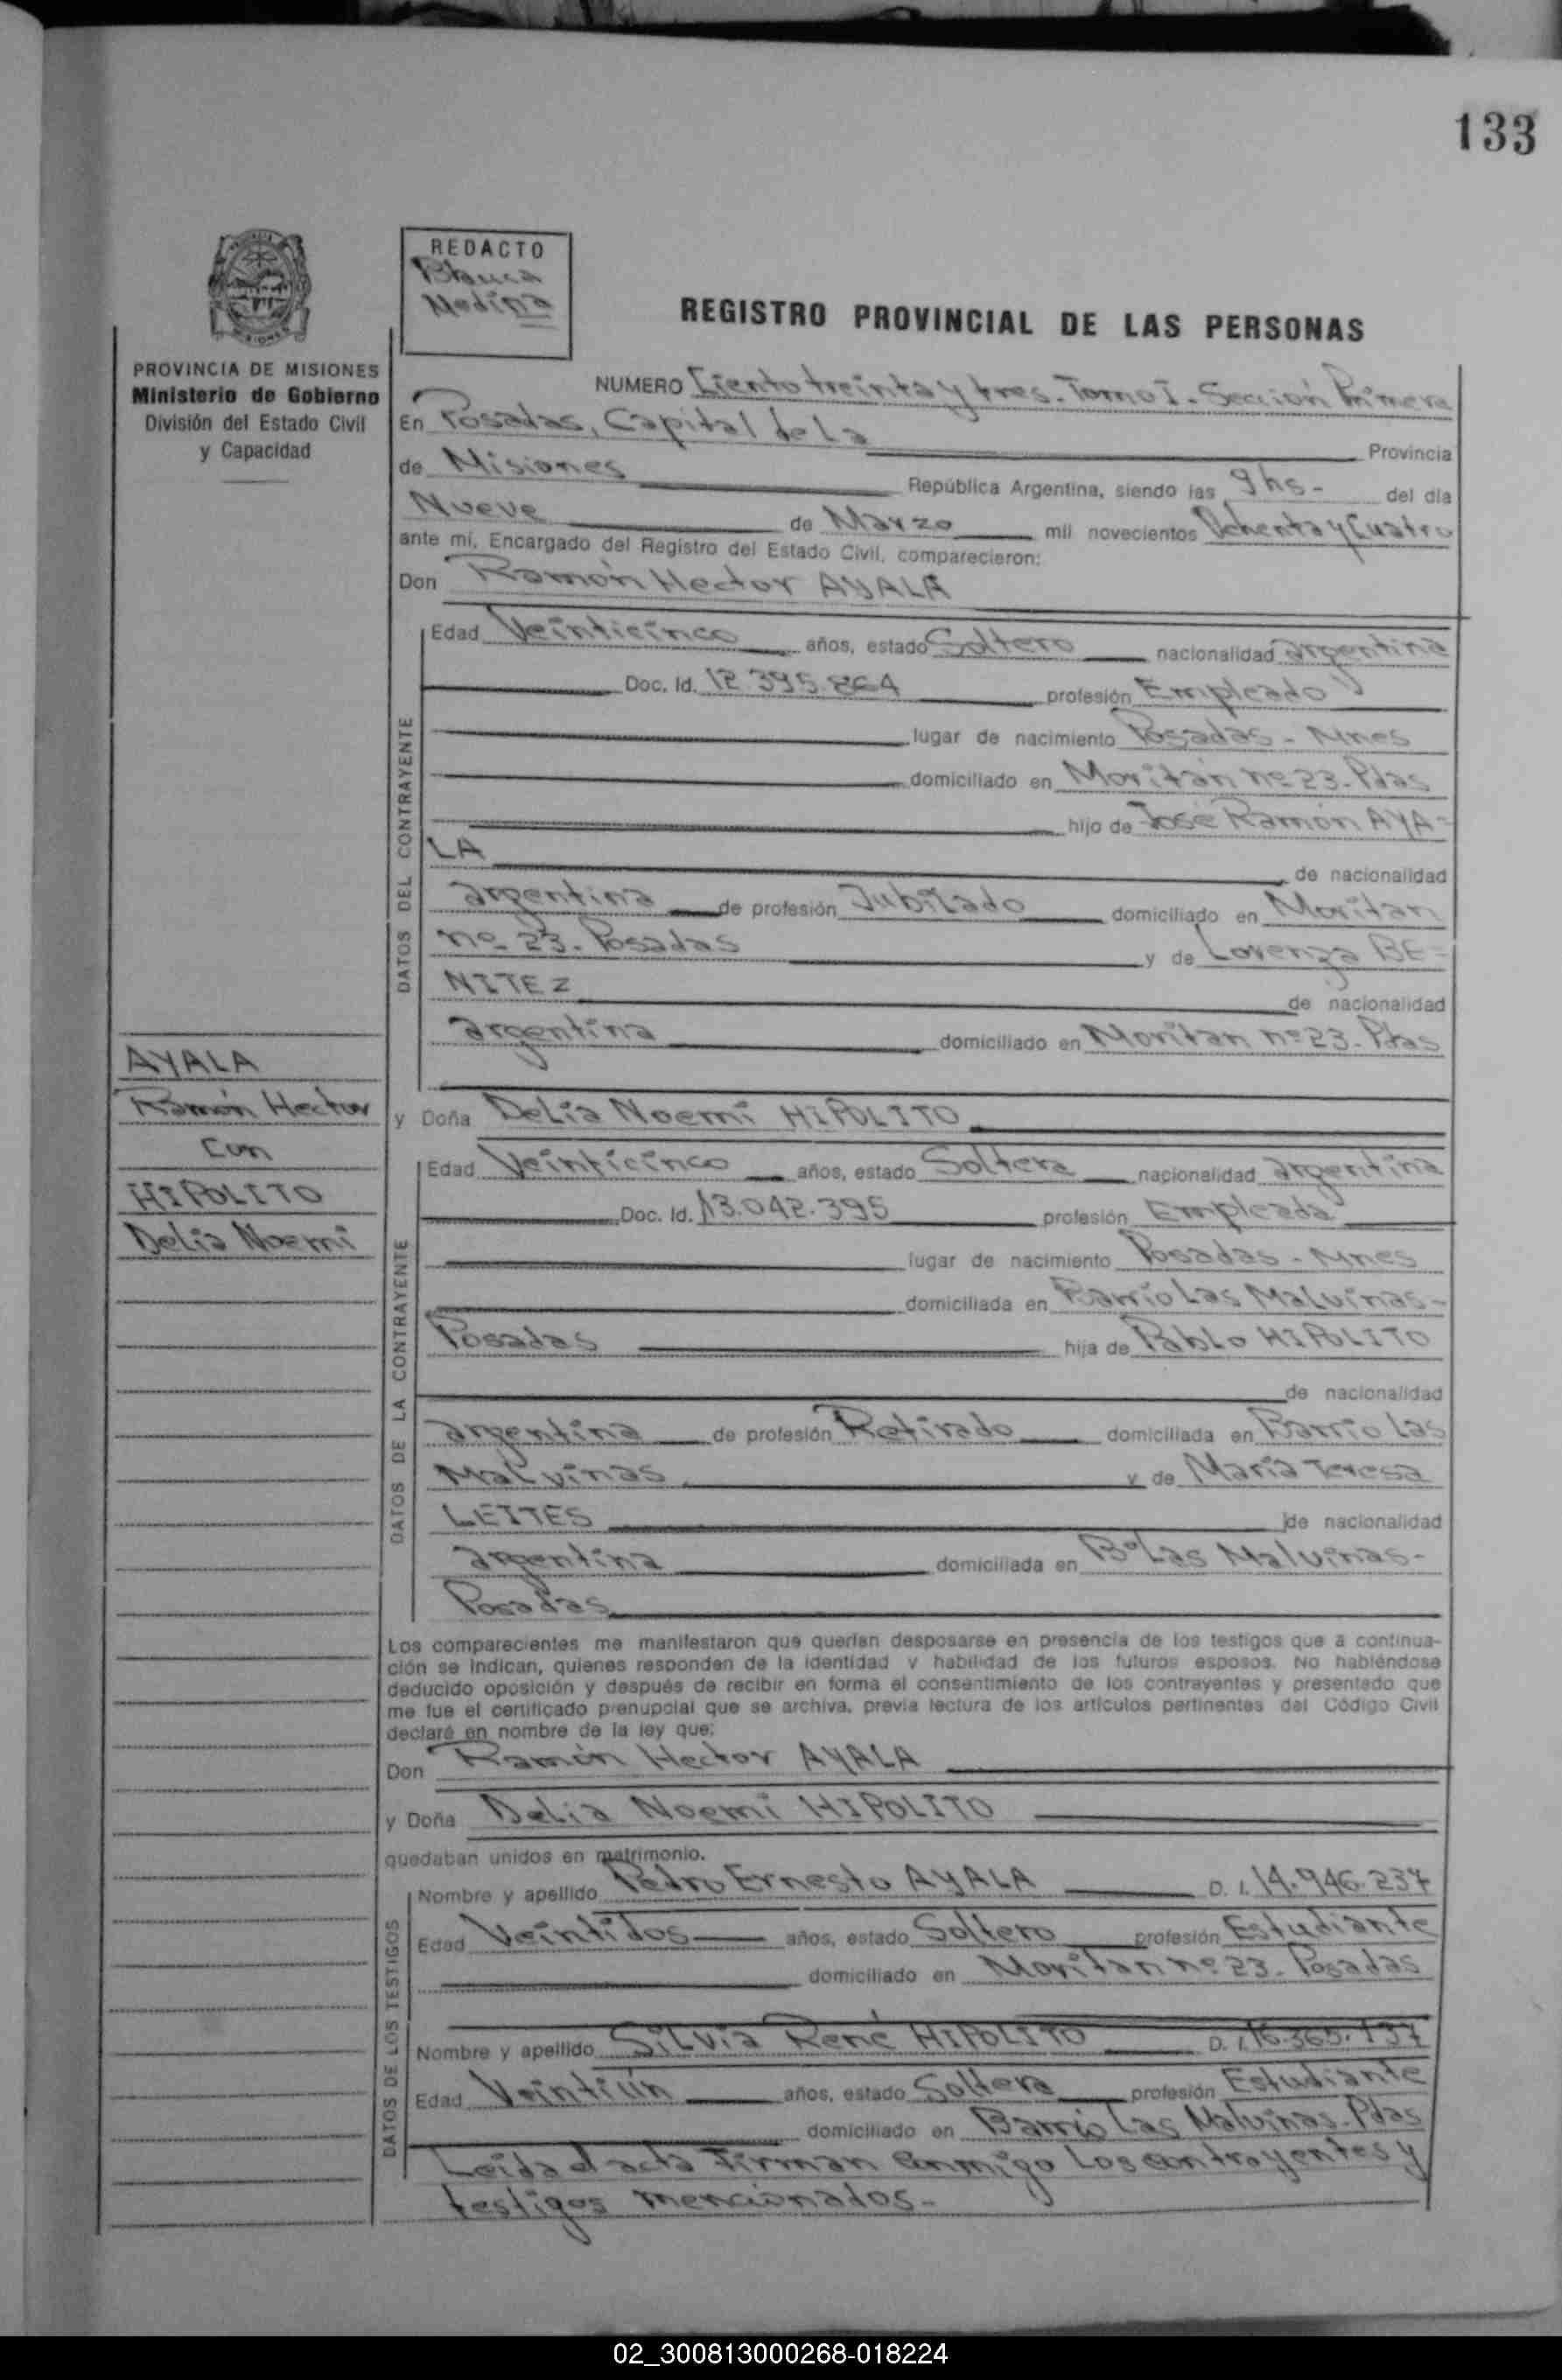 133
REDACTO
Blanca
Medina
REGISTRO PROVINCIAL DE LAS PERSONAS
PROVINCIA DE MISIONES
Ministerio de Gobierno
División del Estado Civil
y Capacidad
NUMERO Ciento treinta y tres. Tomo I. Sección Primera
En Posadas, Capital de la Provincia
de Misiones República Argentina, siendo las 9 hs- del día
Nueve de Marzo mil novecientos Ochenta y Cuatro
ante mí, Encargado del Registro del Estado Civil, comparecieron:
Don Ramón Hector AYALA
DATOS DEL CONTRAYENTE
Edad Veinticinco años, estado Soltero nacionalidad argentina
Doc. Id. 12.395.864 profesión Empleado
lugar de nacimiento Posadas - Mnes
domiciliado en Moritan nº 23- Pdas
hijo de José Ramón AYA=
LA de nacionalidad
argentina de profesión Jubilado domiciliado en Moritan
nº- 23- Posadas y de Lorenza BE=
NITEZ de nacionalidad
argentina domiciliado en Moritan nº 23- Pdas
AYALA
Ramón Hector
Con
HIPOLITO
Delia Noemi
y Doña Delia Noemi HIPOLITO
DATOS DE LA CONTRAYENTE
Edad Veinticinco años, estado Soltera nacionalidad argentina
Doc. Id. 13.042.395 profesión Empleada
lugar de nacimiento Posadas - Mnes
domiciliada en Barrio Las Malvinas-
Posadas hija de Pablo HIPOLITO
de nacionalidad
argentina de profesión Retirado domiciliada en Barrio Las
Malvinas y de María Teresa
LEITES de nacionalidad
argentina domiciliada en Bº Las Malvinas-
Posadas
Los comparecientes me manifestaron que querían desposarse en presencia de los testigos que a continua-
ción se indican, quienes responden de la identidad y habilidad de los futuros esposos. No habiéndose
deducido oposición y después de recibir en forma el consentimiento de los contrayentes y presentado que
me fue el certificado prenupcial que se archiva, previa lectura de los artículos pertinentes del Código Civil
declaré en nombre de la ley que:
Don Ramón Hector AYALA
y Doña Delia Noemi HIPOLITO
quedaban unidos en matrimonio.
DATOS DE LOS TESTIGOS
Nombre y apellido Pedro Ernesto AYALA D. I. 14.946.237
Edad Veintidos años, estado Soltero profesión Estudiante
domiciliado en Moritan nº 23. Posadas
Nombre y apellido Silvia René HIPOLITO D. I. 16.365.137
Edad Veintiún años, estado Soltera profesión Estudiante
domiciliado en Barrio Las Malvinas- Pdas
Leida el acta firman conmigo los contrayentes y
testigos mencionados-
02_300813000268-018224